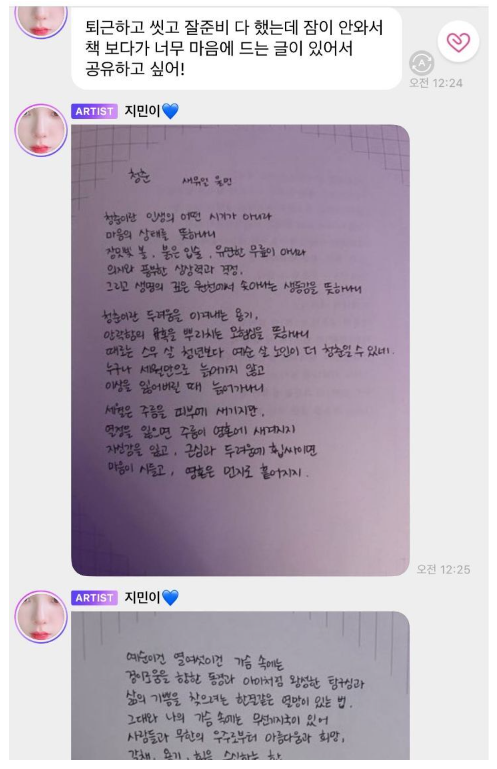 퇴근하고 씻고 잘준비 다 했는데 잠이 안와서
책 보다가 너무 마음에 드는 글이 있어서
공유하고 싶어!
오전 12:24
ARTIST 지민이💙
청춘
새뮤얼 울먼
청춘이란 인생의 어떤 시기가 아니라
마음의 상태를 뜻하나니
장밋빛 볼, 붉은 입술, 유연한 무릎이 아니라
의지와 풍부한 상상력과 격정,
그리고 생명의 깊은 원천에서 솟아나는 생동감을 뜻하나니
청춘이란 두려움을 이겨내는 용기,
안락함의 유혹을 뿌리치는 모험심을 뜻하나니
때로는 스무 살 청년보다 예순 살 노인이 더 청춘일 수 있네.
누구나 세월만으로 늙어가지 않고
이상을 잃어버릴 때 늙어가나니
세월은 주름을 피부에 새기지만,
열정을 잃으면 주름이 영혼에 새겨지지
자신감을 잃고, 근심과 두려움에 휩싸이면
마음이 시들고, 영혼은 먼지로 흩어지지.
오전 12:25
ARTIST 지민이💙
예순이건 열여섯이건 가슴 속에는
경이로움을 향한 동경과 아이처럼 왕성한 탐구심과
삶의 기쁨을 찾으려는 한결같은 열망이 있는 법.
그대와 나의 가슴 속에는 무선기지국이 있어
사람들과 무한의 우주로부터 아름다움과 희망,
갈채, 용기, 힘을 수신하는 한